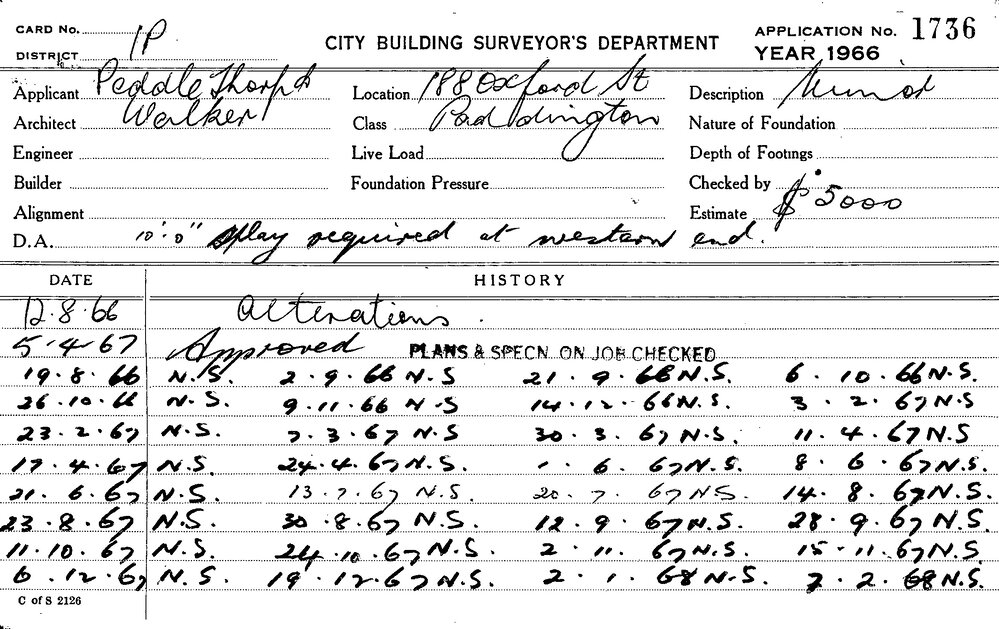 CARD No. 1P
DISTRICT
CITY BUILDING SURVEYOR'S DEPARTMENT
APPLICATION No. 1736
YEAR 1966
Applicant Peddle Thorp &
Location 188 Oxford St
Description Minor
Architect Walker
Class Paddington
Nature of Foundation
Engineer
Live Load
Depth of Footings
Builder
Foundation Pressure
Checked by
Alignment
Estimate $5000
D.A. 10'.0" splay required at western end.
DATE HISTORY
12.8.66 Alterations.
5.4.67 Approved PLANS & SPECN ON JOB CHECKED
19.8.66 N.S. 2.9.66 N.S 21.9.66 N.S. 6.10.66 N.S.
26.10.66 N.S. 9.11.66 N.S 14.12.66 N.S. 3.2.67 N.S
23.2.67 N.S. 7.3.67 N.S 30.3.67 N.S. 11.4.67 N.S
17.4.67 N.S. 24.4.67 N.S. 1.6.67 N.S. 8.6.67 N.S.
21.6.67 N.S. 13.7.67 N.S. 20.7.67 N.S. 14.8.67 N.S.
23.8.67 N.S. 30.8.67 N.S. 12.9.67 N.S. 28.9.67 N.S.
11.10.67 N.S. 24.10.67 N.S. 2.11.67 N.S. 15.11.67 N.S.
6.12.67 N.S. 19.12.67 N.S. 2.1.68 N.S. 7.2.68 N.S.
C of S 2126